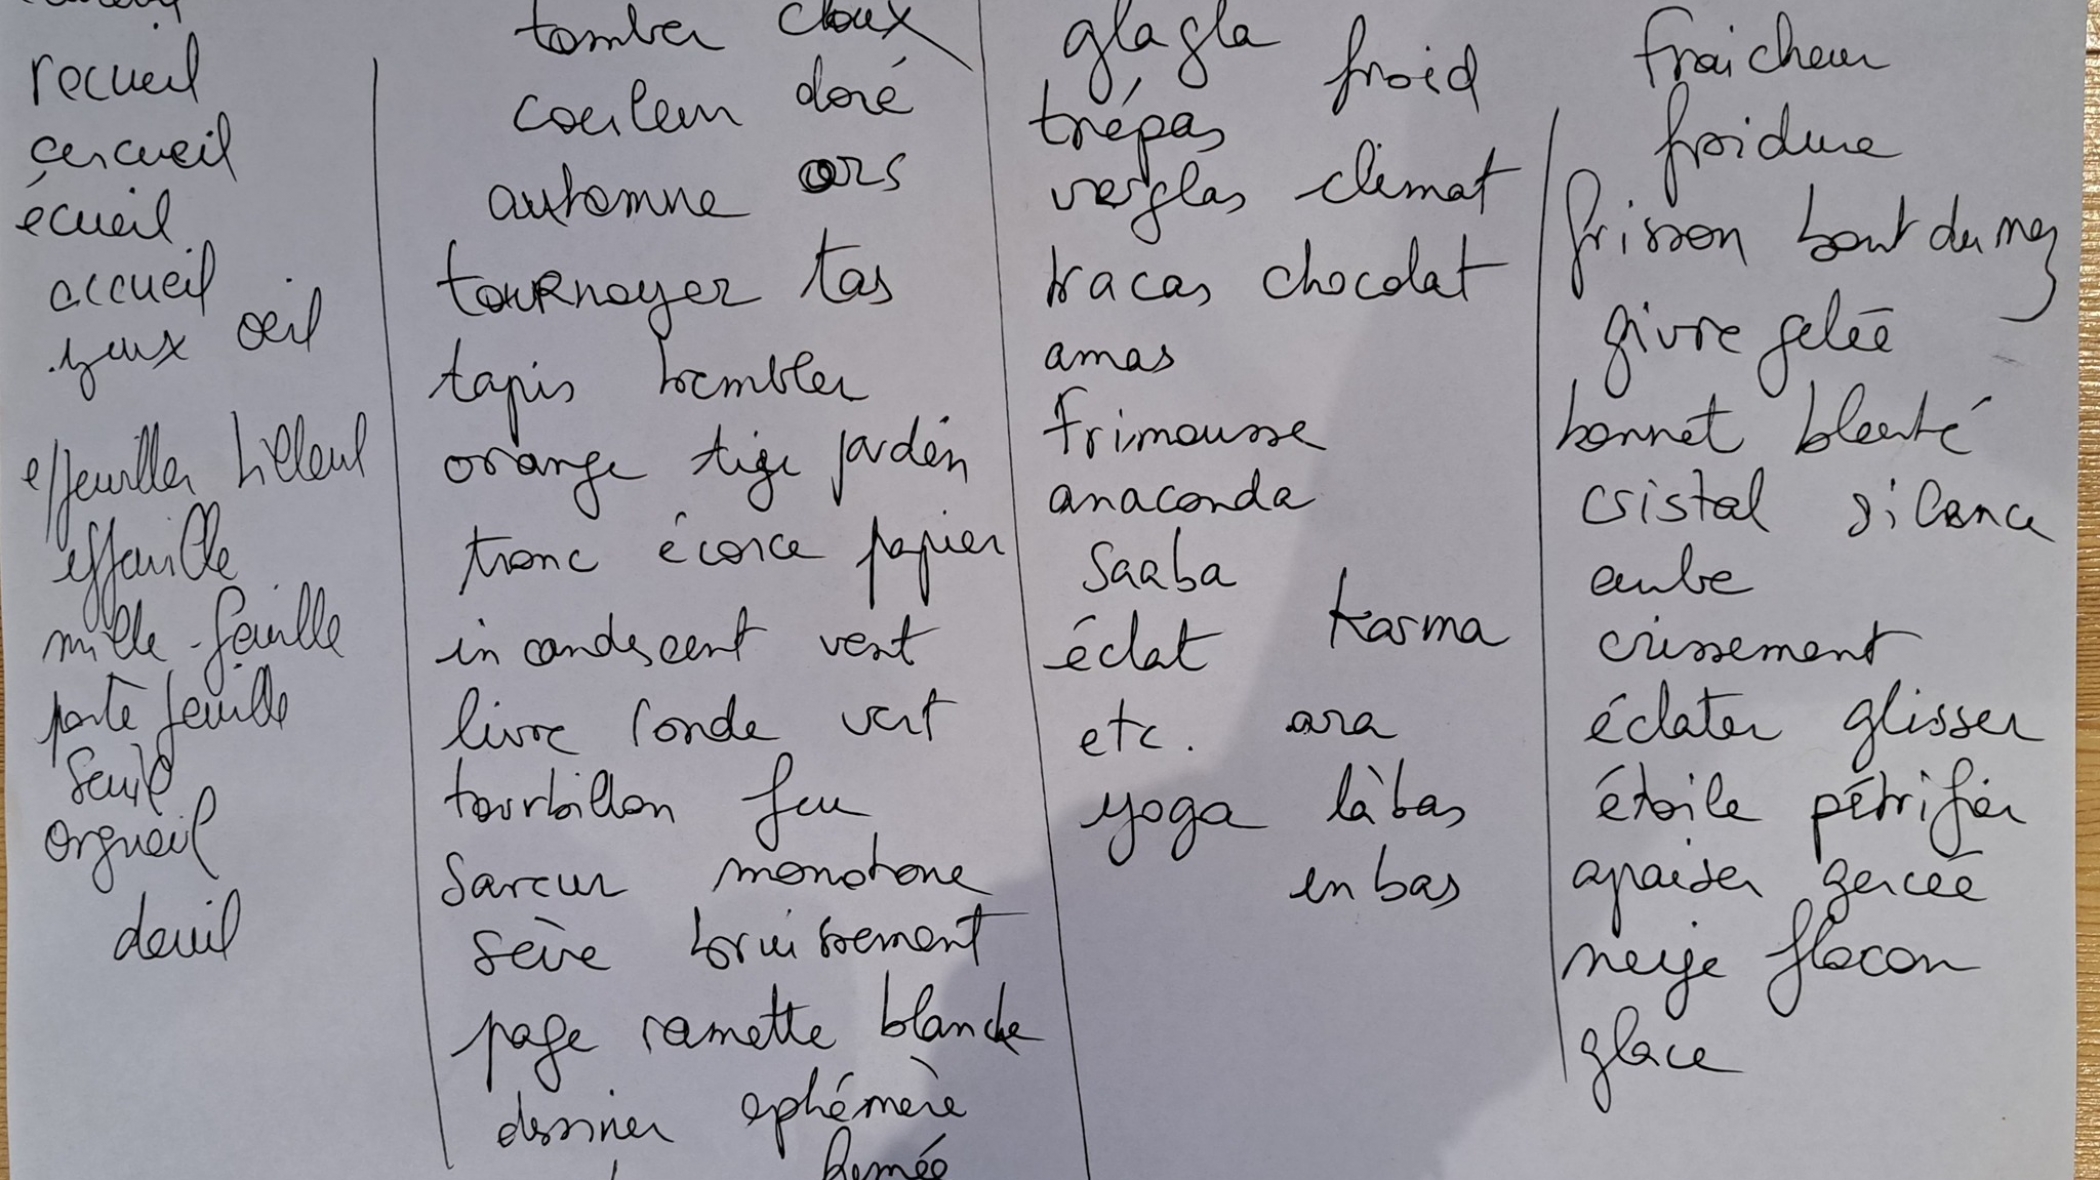 recueil
cercueil
écueil
accueil
yeux œil
effeuiller tilleul
effeuille
mille-feuille
porte feuille
seuil
orgueil
deuil
tomber doux
couleur doré
automne ors
tournoyer tas
tapis trembler
orange tige jardin
tronc écorce papier
incandescent vent
livre ronde vert
tourbillon feu
saveur monotone
sève bruissement
page ramette blanche
dessiner éphémère
glagla froid
trépas
verglas climat
tracas chocolat
amas
frimousse
anaconda
Saaba
karma
éclat
etc. ara
yoga là bas
en bas
fraicheur
froidure
frisson bout du nez
givre gelée
bonnet bleuté
cristal silence
aube
crissement
éclater glisser
étoile pétrifier
apaiser gercée
neige flocon
glace